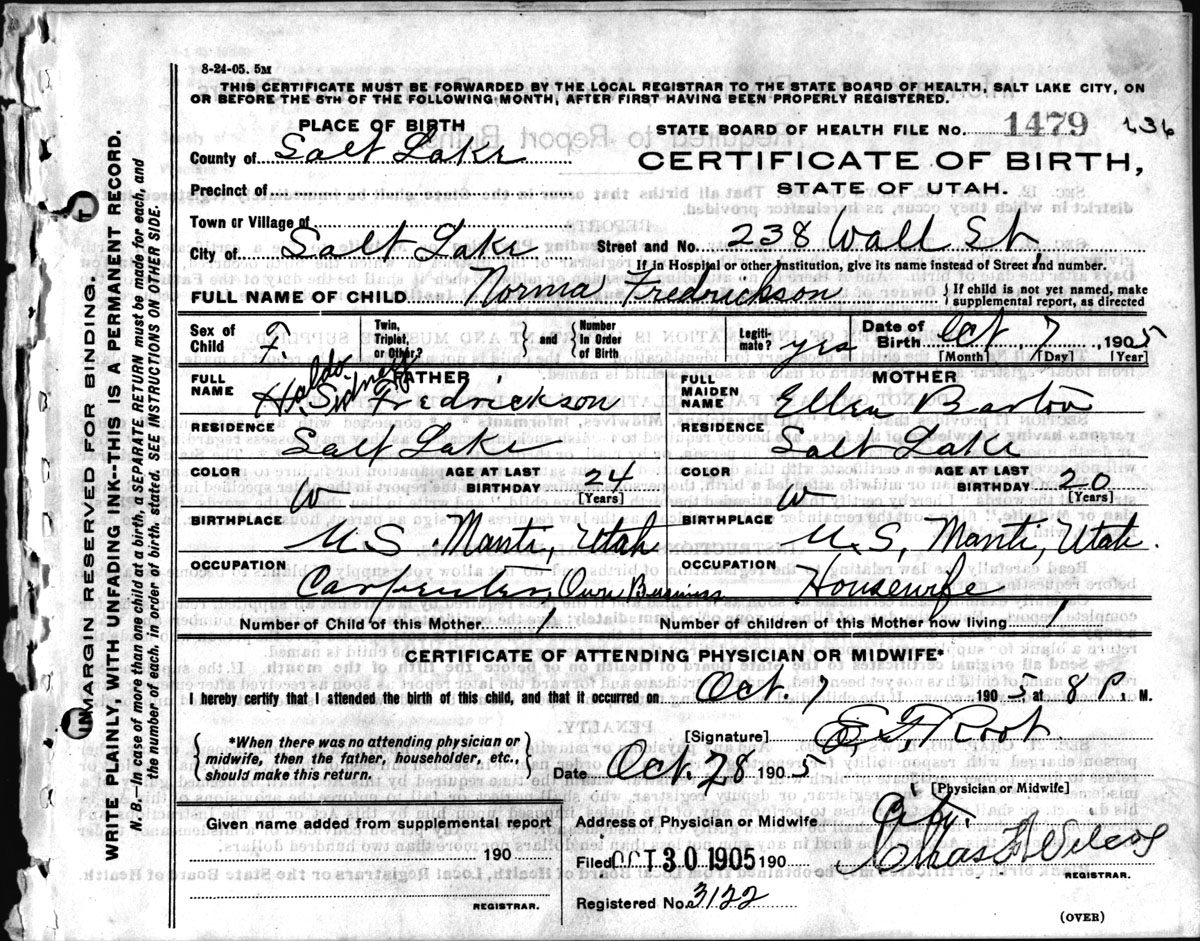 8-24-05. 5M
THIS CERTIFICATE MUST BE FORWARDED BY THE LOCAL REGISTRAR TO THE STATE BOARD OF HEALTH, SALT LAKE CITY, ON
OR BEFORE THE 5TH OF THE FOLLOWING MONTH, AFTER FIRST HAVING BEEN PROPERLY REGISTERED.
PLACE OF BIRTH
STATE BOARD OF HEALTH FILE NO. 1479
County of Salt Lake
CERTIFICATE OF BIRTH,
STATE OF UTAH.
Precinct of
Town or Village of
City of Salt Lake Street and No. 238 Wall St
If in Hospital or other Institution, give its name instead of Street and number.
FULL NAME OF CHILD Norma Fredrickson { If child is not yet named, make
supplemental report, as directed
Sex of Child F. Twin, Triplet, or Other? } and { Number In Order of Birth Legiti-mate? yes Date of Birth Oct 7, 1905
[Month] [Day] [Year]
FATHER
FULL NAME Haldo Sidney
H. Sid Fredrickson
MOTHER
FULL MAIDEN NAME Ellen Barton
RESIDENCE Salt Lake
RESIDENCE Salt Lake
COLOR W AGE AT LAST BIRTHDAY 24 [Years]
COLOR W AGE AT LAST BIRTHDAY 20 [Years]
BIRTHPLACE U.S. Manti, Utah
BIRTHPLACE U.S, Manti, Utah.
OCCUPATION Carpenter, Own Business
OCCUPATION Housewife
Number of Child of this Mother 1 Number of children of this Mother now living 1
CERTIFICATE OF ATTENDING PHYSICIAN OR MIDWIFE*
I hereby certify that I attended the birth of this child, and that it occurred on Oct. 7 1905 at 8 P. M.
{ *When there was no attending physician or
midwife, then the father, householder, etc.,
should make this return. }
[Signature] E. F. Root
Date Oct. 28 1905
[Physician or Midwife]
Given name added from supplemental report
190
REGISTRAR.
Address of Physician or Midwife City
Filed OCT 30 1905 190 Chas F Wilcox
REGISTRAR.
Registered No. 3122
(OVER)
MARGIN RESERVED FOR BINDING.
WRITE PLAINLY, WITH UNFADING INK--THIS IS A PERMANENT RECORD.
N. B.—In case of more than one child at a birth, a SEPARATE RETURN must be made for each, and
the number of each, in order of birth, stated. SEE INSTRUCTIONS ON OTHER SIDE.